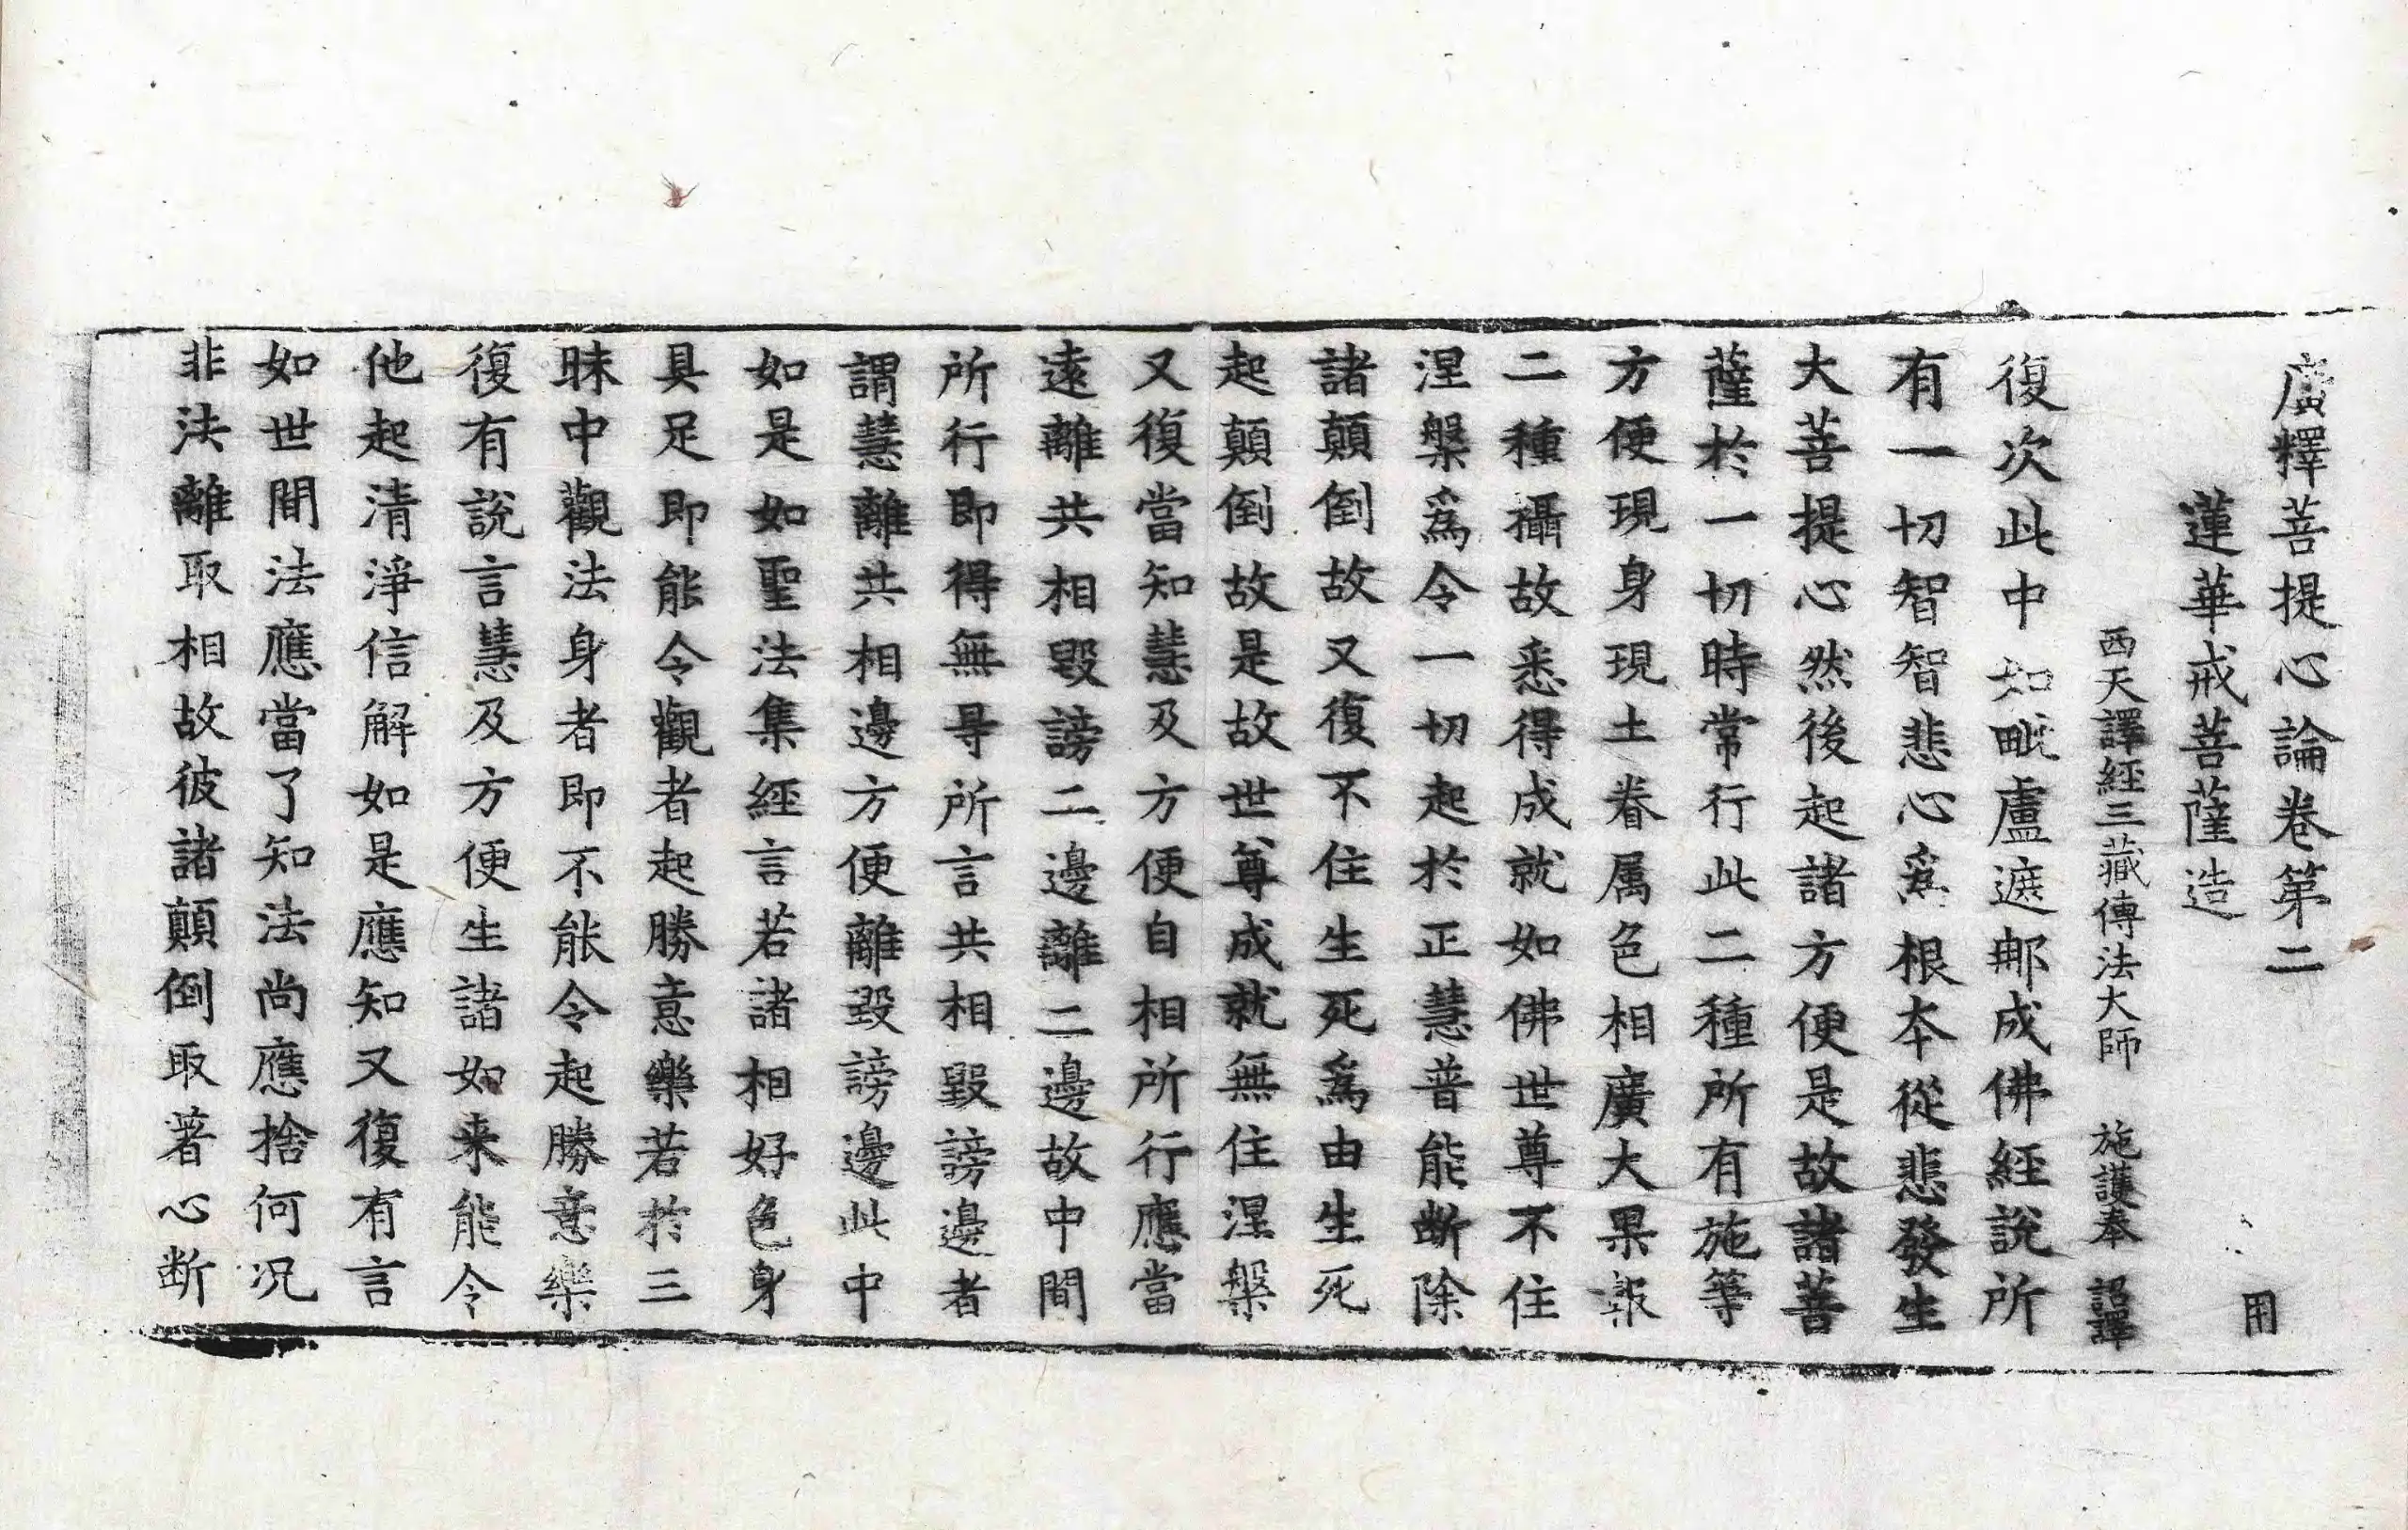 廣釋菩提心論卷第二
用
蓮華戒菩薩造
西天譯經三藏傳法大師 施護奉 詔譯
復次此中如毗盧遮那成佛經說所
有一切智智悲心爲根本從悲發生
大菩提心然後起諸方便是故諸菩
薩於一切時常行此二種所有施等
方便現身現土眷属色相廣大果報
二種攝故悉得成就如佛世尊不住
涅槃爲令一切起於正慧普能断除
諸顛倒故又復不住生死爲由生死
起顛倒故是故世尊成就無住涅槃
又復當知慧及方便自相所行應當
遠離共相毀謗二邊離二邊故中間
所行即得無㝵所言共相毀謗邊者
謂慧離共相邊方便離毀謗邊此中
如是如聖法集經言若諸相好色身
具足即能令觀者起勝意樂若於三
昧中觀法身者即不能令起勝意樂
復有說言慧及方便生諸如来能令
他起清淨信解如是應知又復有言
如世間法應當了知法尚應捨何况
非法離取相故彼諸顛倒取著心断